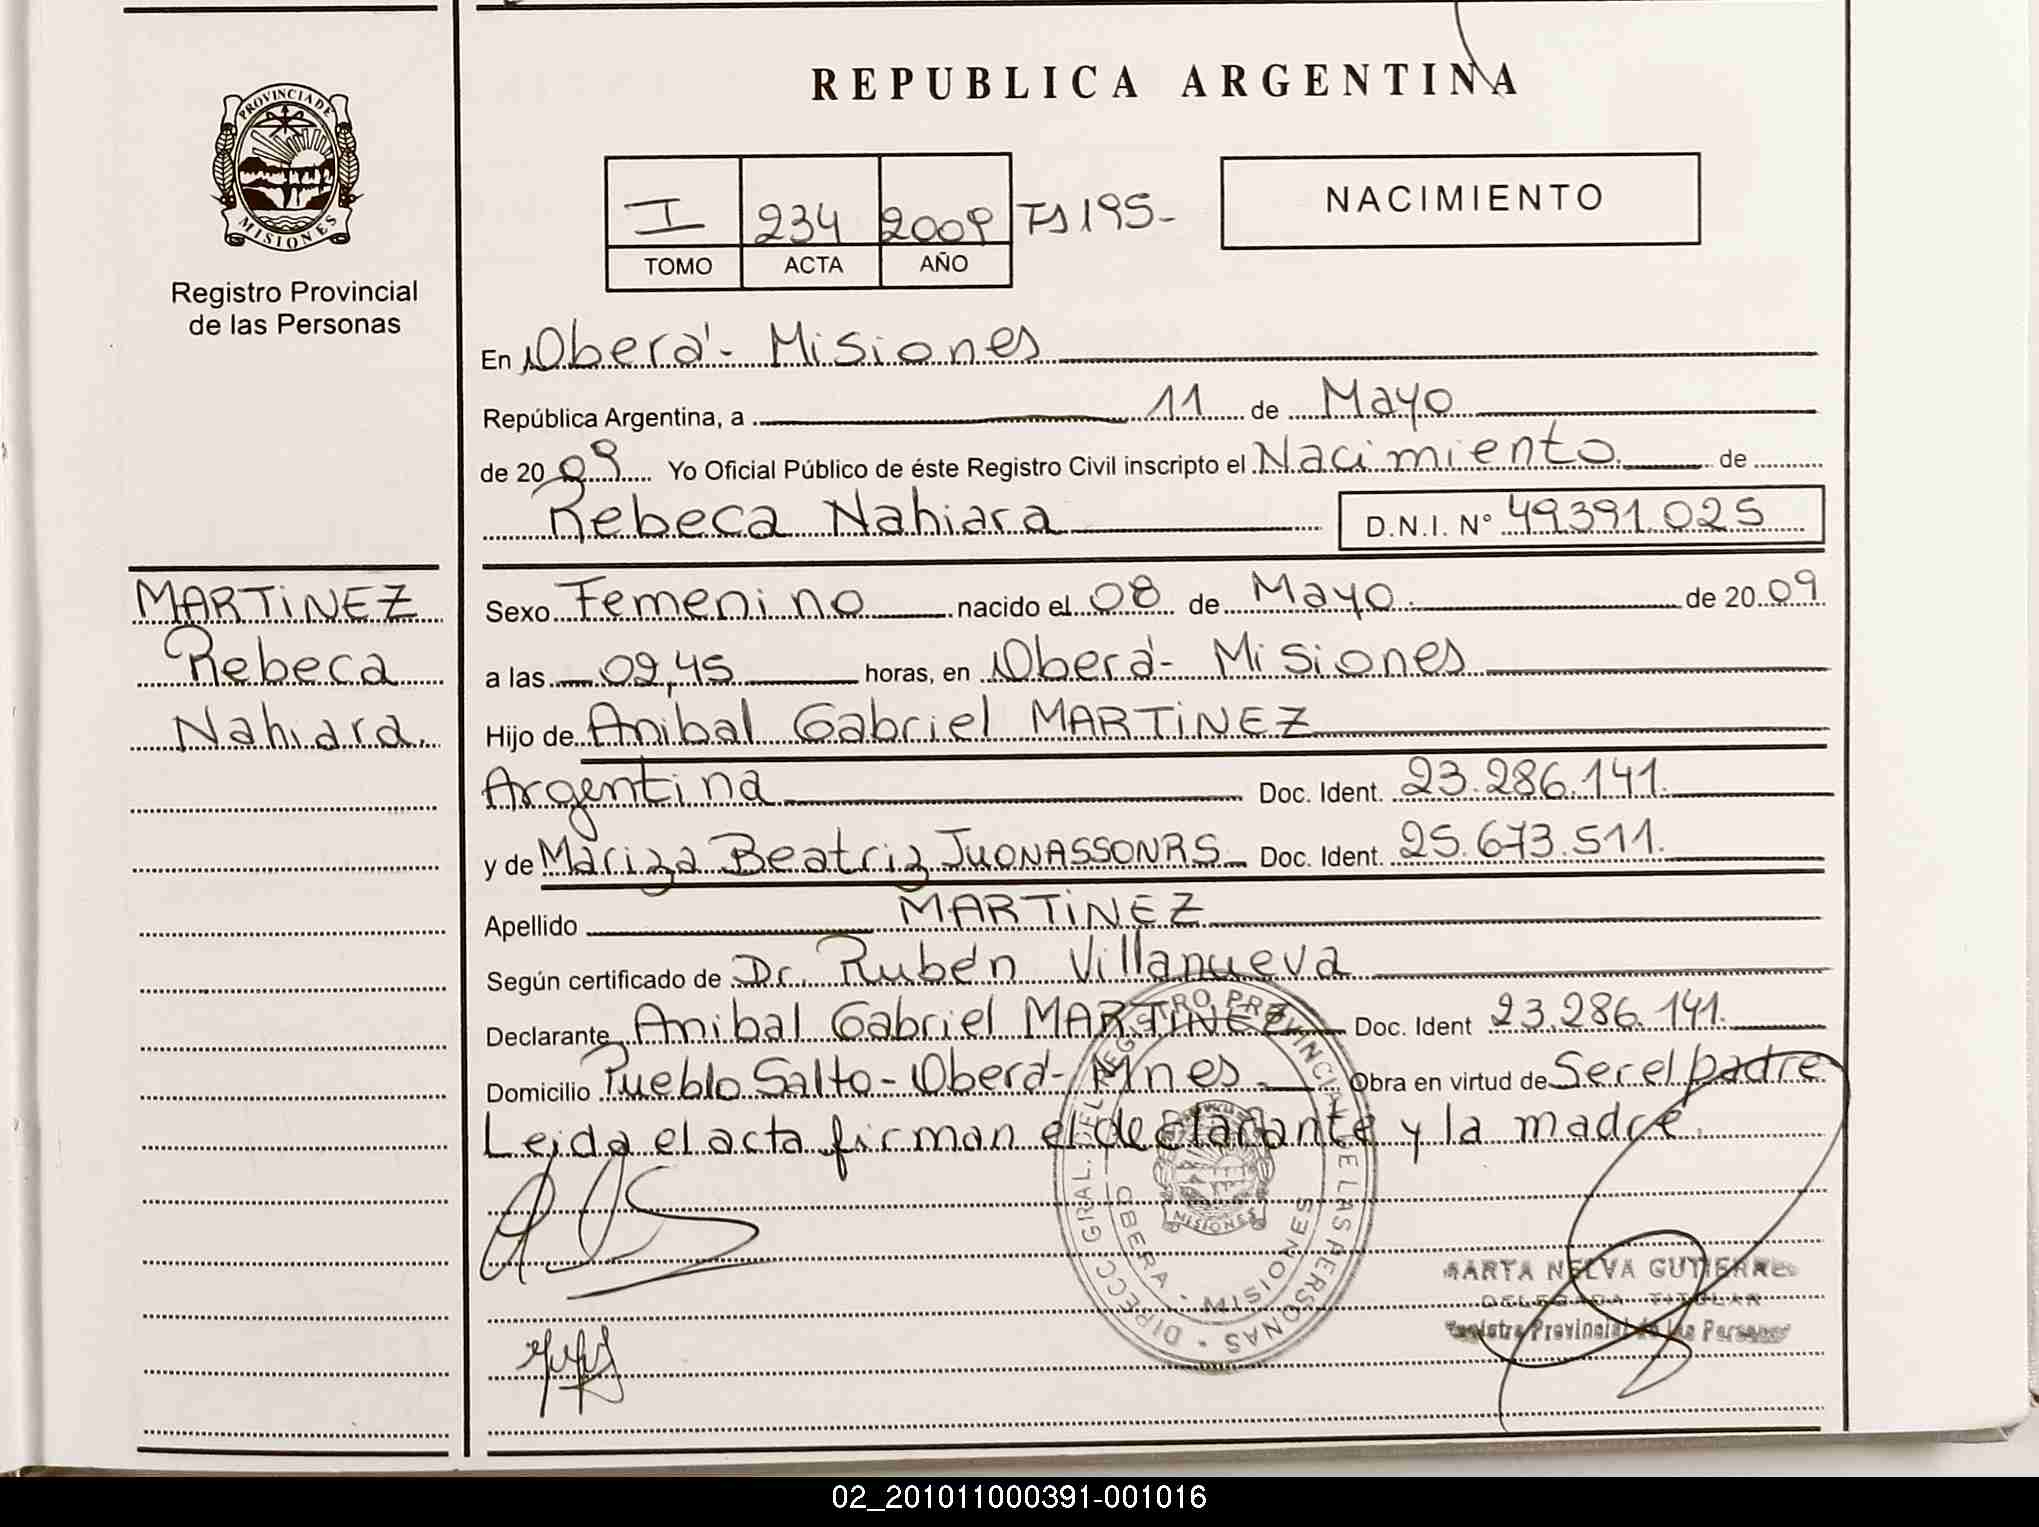 REPUBLICA ARGENTINA
PROVINCIA DE MISIONES
Registro Provincial
de las Personas
I 234 2009 Fs 195-
TOMO ACTA AÑO
NACIMIENTO
En Oberá - Misiones
República Argentina, a 11 de Mayo
de 20 09 Yo Oficial Público de éste Registro Civil inscripto el Nacimiento de
Rebeca Nahiara D.N.I. N° 49.391.025
MARTiNEZ
Rebeca
Nahiara.
Sexo Femenino nacido el 08 de Mayo. de 20 09
a las 09,45 horas, en Oberá - Misiones
Hijo de Anibal Gabriel MARTiNEZ
Argentina Doc. Ident. 23.286.141.
y de Mariza Beatriz JUONASSONRS Doc. Ident. 25.673.511.
Apellido MARTiNEZ
Según certificado de Dr. Rubén Villanueva
Declarante Anibal Gabriel MARTINEZ Doc. Ident 23.286.141.
Domicilio Pueblo Salto - Oberá - Mnes. Obra en virtud de Ser el padre
Leida el acta firman el declarante y la madre.
DIRECC. GRAL. DEL REGISTRO PROVINCIAL DE LAS PERSONAS
OBERA - MISIONES
MISIONES
MARTA NELVA GUTIERREZ
DELEGADA TITULAR
Registro Provincial de las Personas
02_201011000391-001016